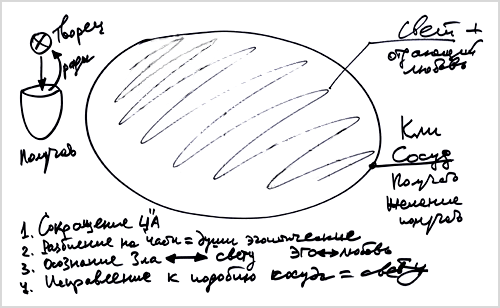 Творец
ради
Получать
Свет +
отдающий
любовь
Кли
Сосуд
Получать
Желание
получать
1. Сокращение Ц"А
2. Разбиение на части = души эгоистические
3. Осознание Зла ↔ свету Эго ↔ любовь
4. Исправление к подобию сосуда = свету